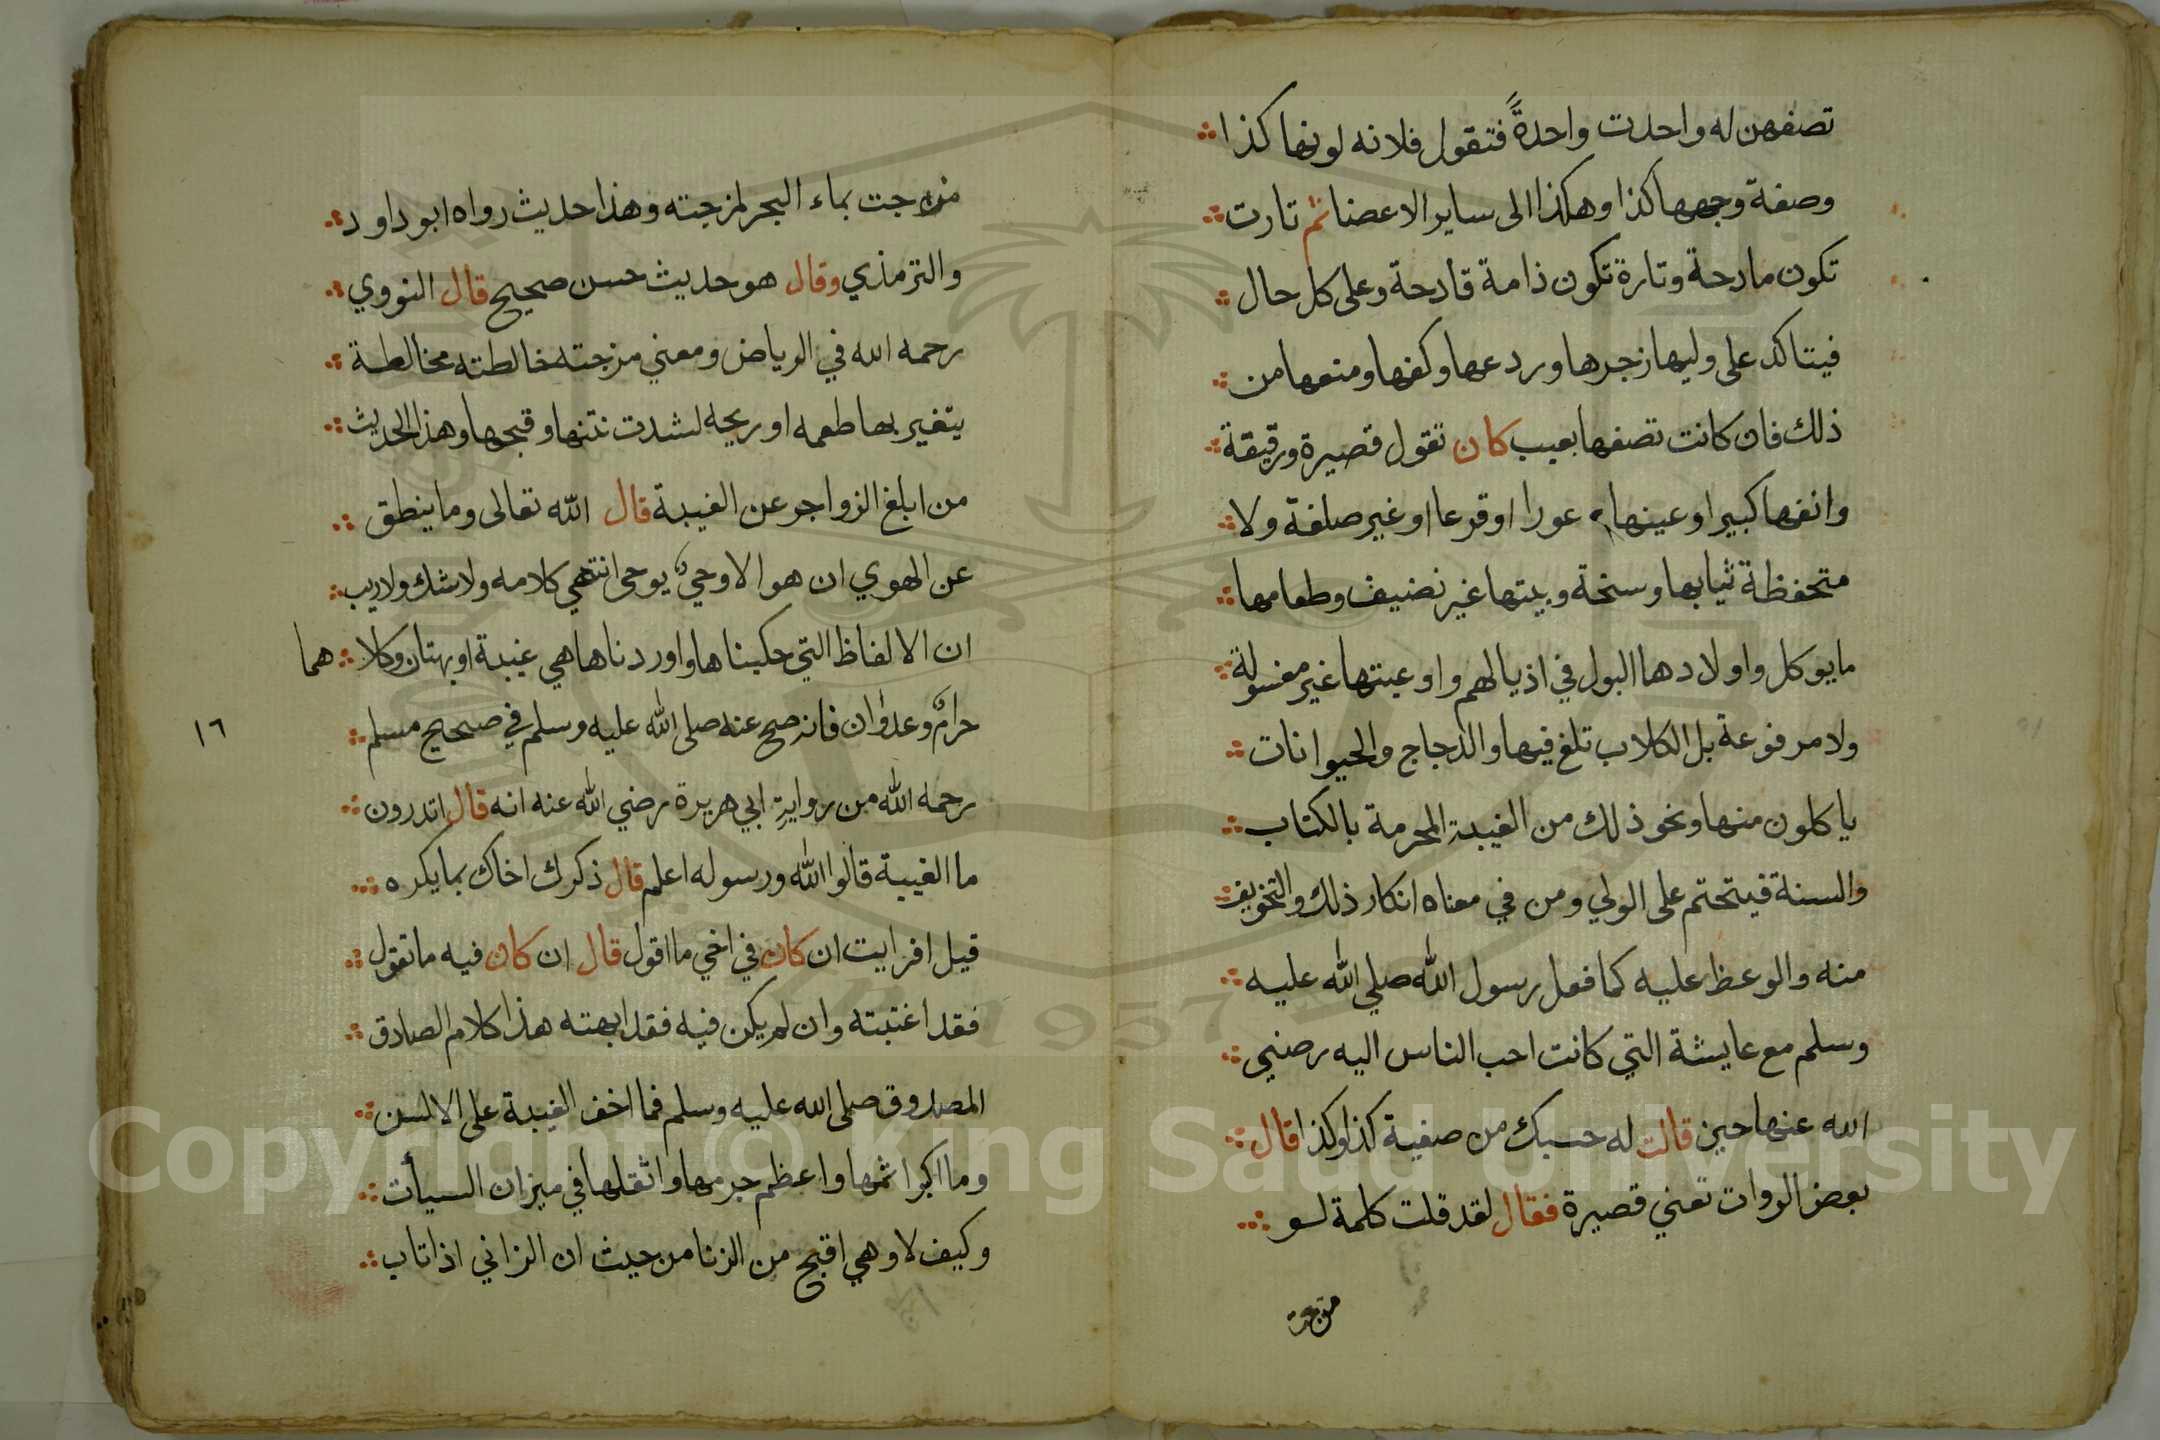 تصفهن له واحدت واحدةً فتقول فلانه لونها كذا
وصفة وجهها كذا وهكذا الى ساير الاعضا ثم تارت
تكون مادحة وتارة تكون ذامة قادحة وعلى كل حال
فيتاكد على وليها زجرها وردعها وكفها ومنعها من
ذلك فان كانت تصفها بعيب كان تقول قصيرة ورقيقة
وانفها كبير او عينها عورا او قرعا او غير صلفة ولا
متحفظة ثيابها وسخة وبيتها غير نضيف وطعامها
ما يوكل واولادها البول في اذيالهم واوعيتها غير مغسولة
ولا مرفوعة بل الكلاب تلغ فيها والدجاج والحيوانات
ياكلون منها ونحو ذلك من الغيبة المحرمة بالكتاب
والسنة فيتحتم على الولي ومن في معناه انكار ذلك والتخويف
منه والوعظ عليه كما فعل رسول الله صلي الله عليه
وسلم مع عايشة التي كانت احب الناس اليه رضي
الله عنها حين قالت له حسبك من صفية كذا وكذا قال
بعض الروات تعني قصيرة فقال لقد قلت كلمة لو
مزجت
مزجت بماء البحر لمزجته وهذا حديث رواه ابو داود
والترمذي وقال هو حديث حسن صحيح قال النووي
رحمه الله في الرياض ومعني مزجته خالطته مخالطة
يتغير بها طعمه او ريحه لشدت نتنها وقبحها وهذا الحديث
من ابلغ الزواجر عن الغيبة قال الله تعالى وما ينطق
عن الهوي ان هو الا وحي يوحى انتهي كلامه ولا شك ولا ريب
ان الالفاظ التي حكيناها واوردناها هي غيبة او بهتان وكلاهما
حرام وعدوان فانه صح عنه صلى الله عليه وسلم في صحيح مسلم
١٦
رحمه الله من رواية ابي هريرة رضي الله عنه انه قال اتدرون
ما الغيبة قالوا الله ورسوله اعلم قال ذكرك اخاك بما يكره
قيل افرايت ان كان في اخي ما اقول قال ان كان فيه ما تقول
فقد اغتبته وان لم يكن فيه فقد ابهته هذا كلام الصادق
المصدوق صلى الله عليه وسلم فما اخف الغيبة على الالسن
وما اكبر اثمها واعظم جرمها واثقلها في ميزان السيأت
وكيف لا وهي اقبح من الزنا من حيث ان الزاني اذا تاب
Copyright © King Saud University
1957